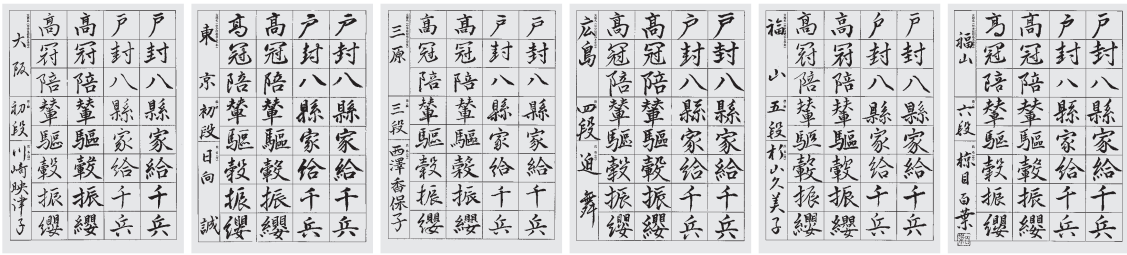 戸封八縣家給千兵
戸封八縣家給千兵
高冠陪輦驅轂振纓
高冠陪輦驅轂振纓
福山 六段 百葉
戸封八縣家給千兵
戸封八縣家給千兵
高冠陪輦驅轂振纓
高冠陪輦驅轂振纓
福山 五段 杉山久美子
戸封八縣家給千兵
戸封八縣家給千兵
高冠陪輦驅轂振纓
高冠陪輦驅轂振纓
広島 四段 迫 舞
戸封八縣家給千兵
戸封八縣家給千兵
高冠陪輦驅轂振纓
高冠陪輦驅轂振纓
三原 三段 西澤香保子
戸封八縣家給千兵
戸封八縣家給千兵
高冠陪輦驅轂振纓
高冠陪輦驅轂振纓
東京 初段 日向 誠
戸封八縣家給千兵
戸封八縣家給千兵
高冠陪輦驅轂振纓
高冠陪輦驅轂振纓
大阪 初段 川崎映津子